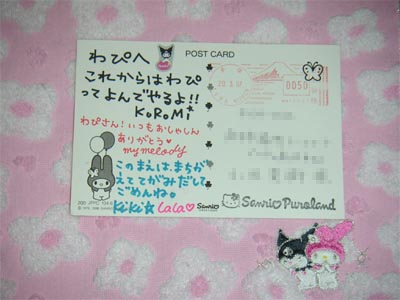 わぴへ
POST CARD
これからはわぴ
ってよんでやるよ!!
KUROMI
わぴさん!いつもおしゃしん
ありがとう♥
my melody
このまえは、まちが
えててがみだして
ごめんね。
KiKi☆ LaLa♡
0050
Sanrio
Sanrio Puroland